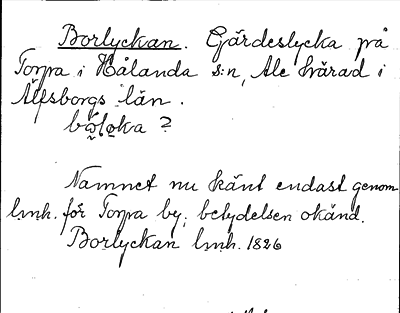 Borlyckan. Gärdeslycka på
Torpa i Hålanda s:n, Ale härad i
Älfsborgs län.
Namnet nu känt endast genom
lmh. för Torpa by; betydelsen okänd.
Borlyckan lmh. 1826